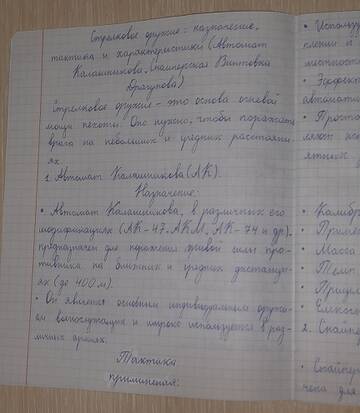 Стрелковое оружие - назначение,
тактика и характеристики (Автомат
Калашникова, Снайперская Винтовка
Драгунова)
Стрелковое оружие - это основа огневой
мощи пехоты. Оно нужно, чтобы поражать
врага на небольших и средних расстояни-
ях
1. Автомат Калашникова (АК).
Назначение:
• Автомат Калашникова, в различных его
модификациях (АК-47, АКМ, АК-74 и др).
предназначен для поражения живой силы про-
тивника на ближних и средних дистанци-
ях (до 400м).
• Он является основным индивидуальным оружи-
ем военнослужащих и широко используется в раз-
личных армиях.
Тактика
применения:
• Использу
• Простота
• Калибр
• Прицел
• Масса
• Темп
• Прицел
• Емкост
2. Снайпер
• Снайпер
чена для